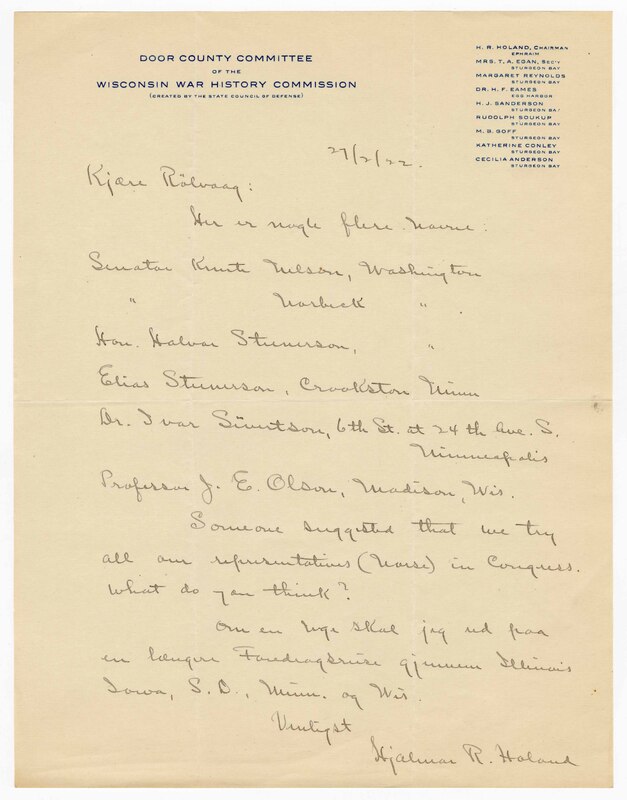 DOOR COUNTY COMMITTEE
OF THE
WISCONSIN WAR HISTORY COMMISSION
(CREATED BY THE STATE COUNCIL OF DEFENSE)
H. R. HOLAND, CHAIRMAN
EPHRAIM
MRS. T. A. EGAN, SEC'Y
STURGEON BAY
MARGARET REYNOLDS
STURGEON BAY
DR. H. F. EAMES
EGG HARBOR
H. J. SANDERSON
STURGEON BAY
RUDOLPH SOUKUP
STURGEON BAY
M. B. GOFF
STURGEON BAY
KATHERINE CONLEY
STURGEON BAY
CECILIA ANDERSON
STURGEON BAY
27/2/22.
Kjære Rölvaag:
Her er nogle flere Navne:
Senator Knute Nelson, Washington
" Norbeck "
Hon. Halvor Steenerson, "
Elias Steenerson, Crookston Minn
Dr. Ivar Sivertson, 6th St. at 24th Ave. S.
Minneapolis
Professor J. E. Olson, Madison, Wis.
Someone suggested that we try
all our representatives (Norse) in Congress.
What do you think?
Om en Uge skal jeg ud paa
en længere Foredragsreise gjennem Illinois
Iowa, S. D., Minn. og Wis.
Venligst
Hjalmar R. Holand